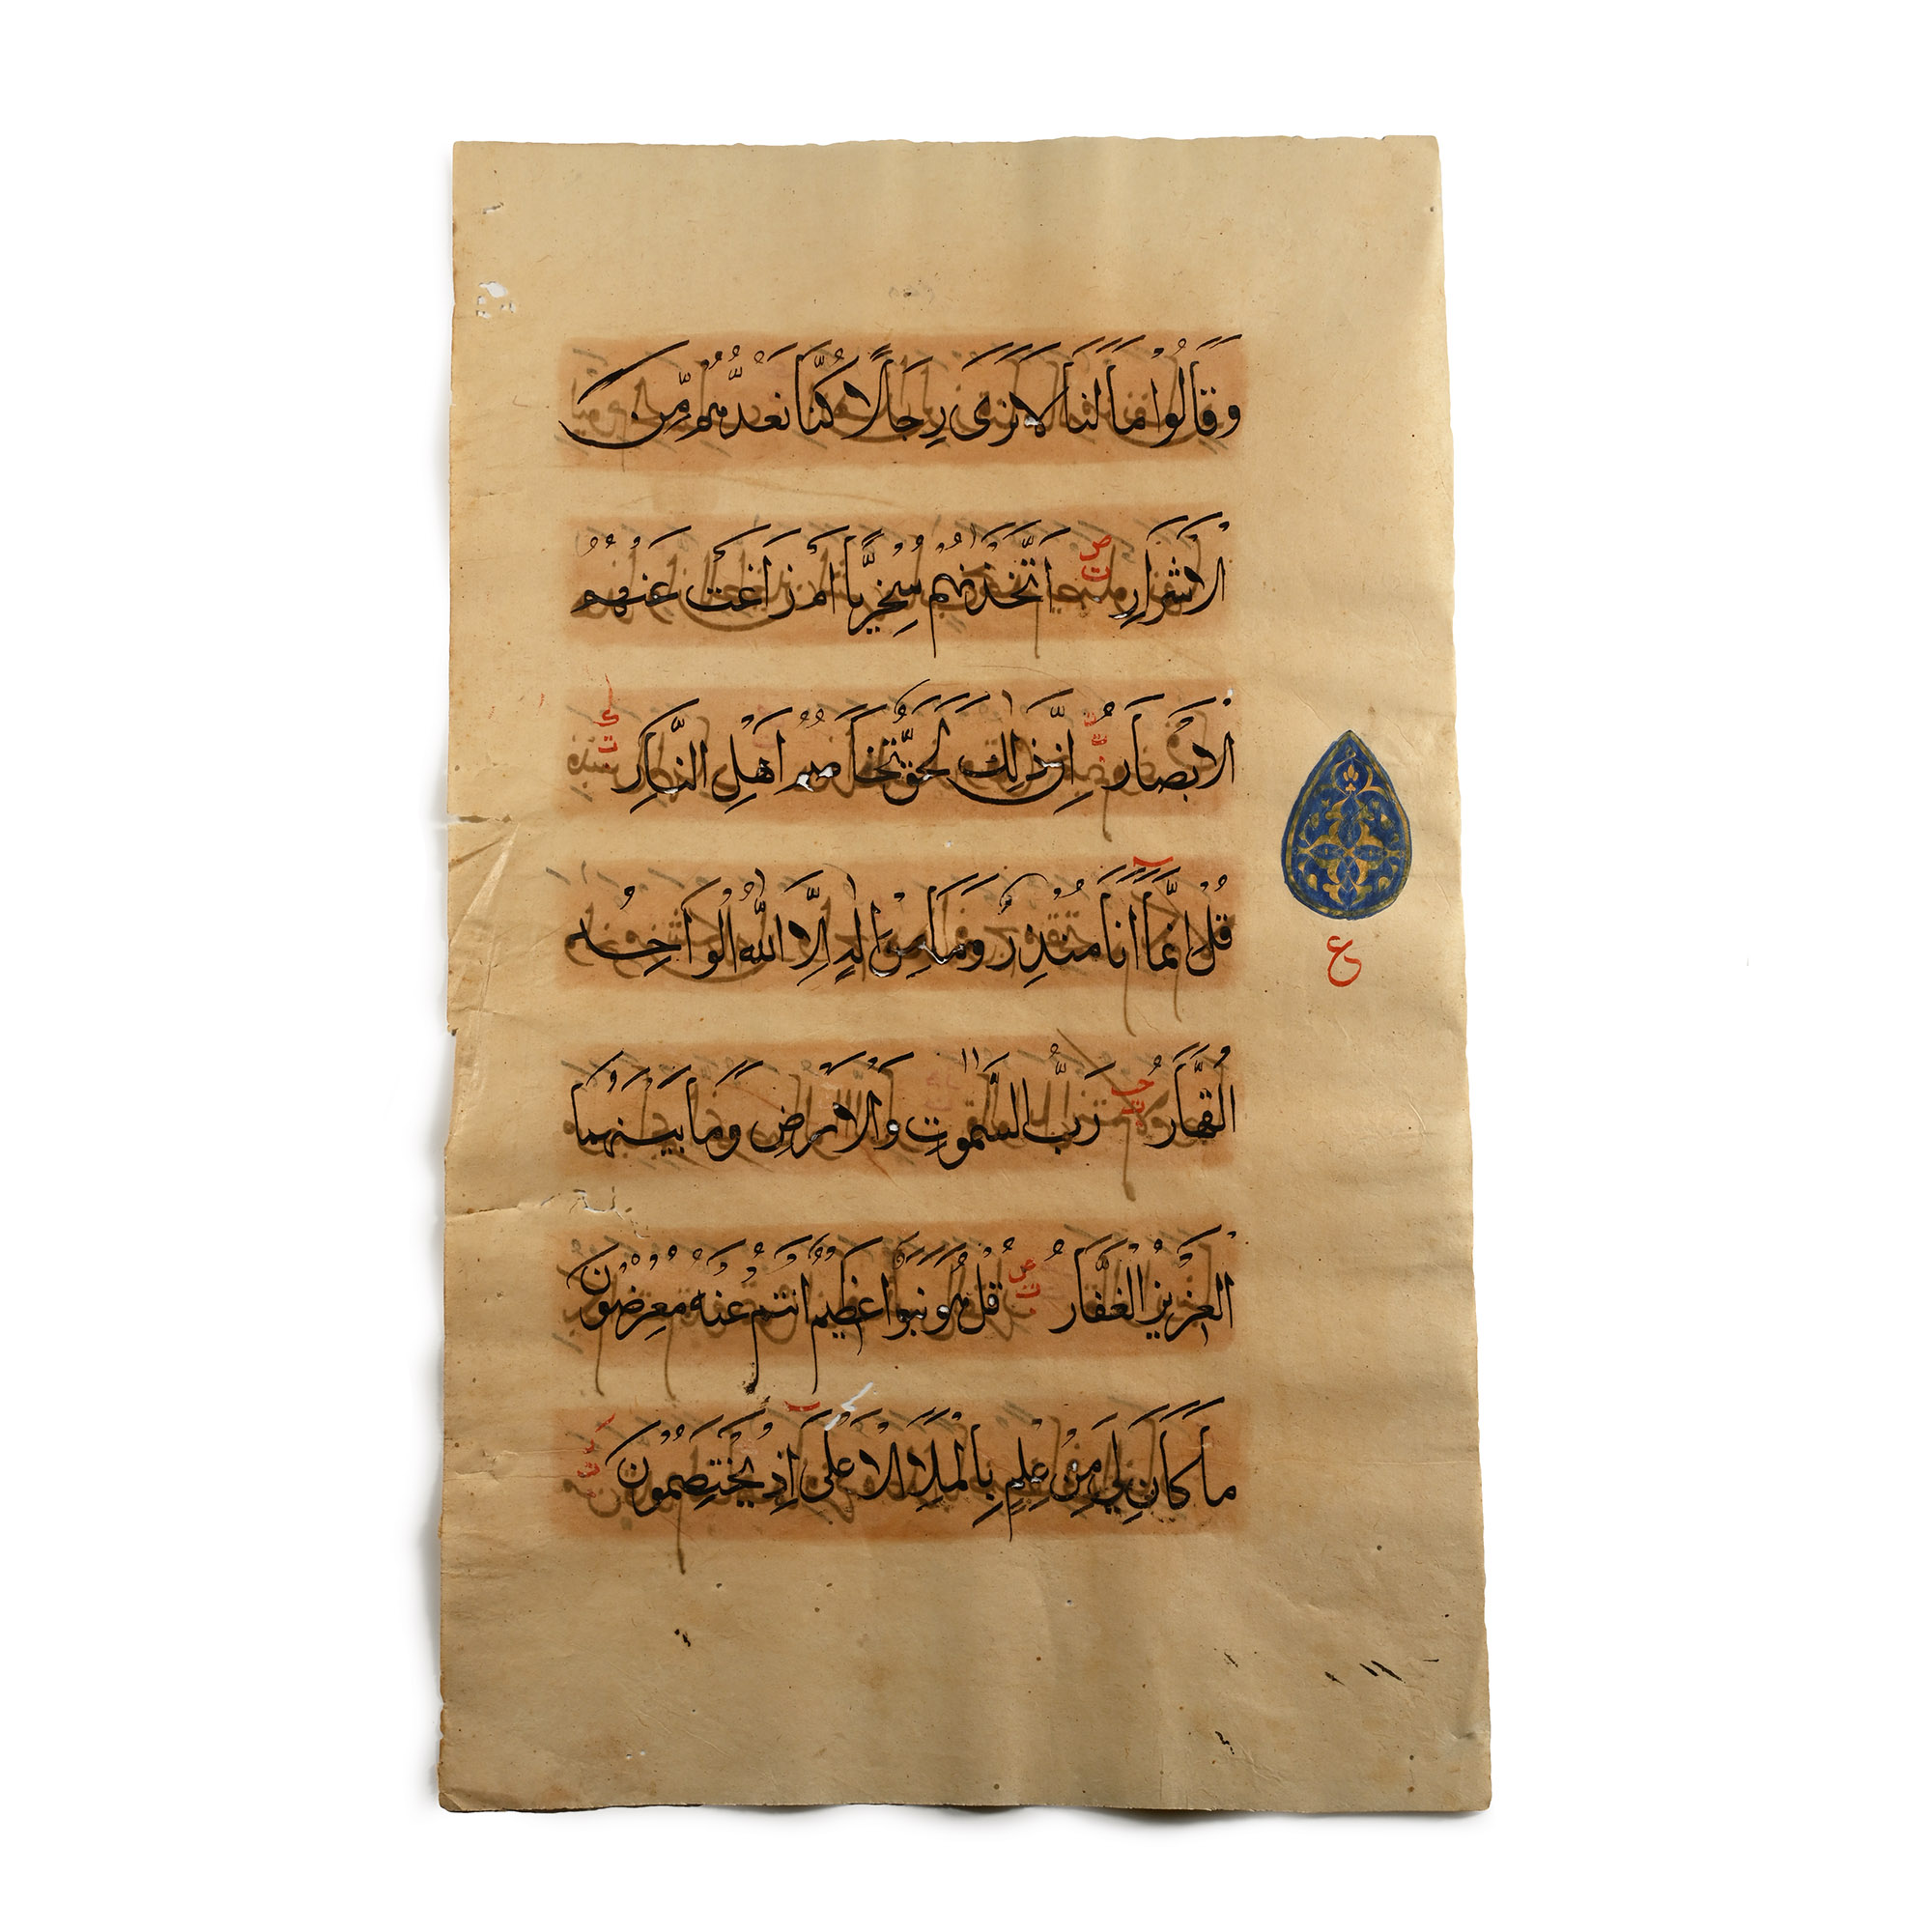 وَقَالُوا مَا لَنَا لَا نَرَى رِجَالًا كُنَّا نَعُدُّهُم مِّنَ
الْاَشْرَارِ اَتَّخَذْنٰهُمْ سِخْرِيًّا اَمْ زَاغَتْ عَنْهُمُ
الْاَبْصَارُ اِنَّ ذٰلِكَ لَحَقٌّ تَخَاصُمُ اَهْلِ النَّارِ
قُلْ اِنَّمَا اَنَا مُنْذِرٌ وَمَا مِنْ اِلٰهٍ اِلَّا اللّٰهُ الْوَاحِدُ
ع
الْقَهَّارُ رَبُّ السَّمٰوٰتِ وَالْاَرْضِ وَمَا بَيْنَهُمَا
الْعَزِيزُ الْغَفَّارُ قُلْ هُوَ نَبَؤٌا عَظِيمٌ اَنْتُمْ عَنْهُ مُعْرِضُونَ
مَا كَانَ لِيَ مِنْ عِلْمٍ بِالْمَلَاِ الْاَعْلَى اِذْ يَخْتَصِمُونَ